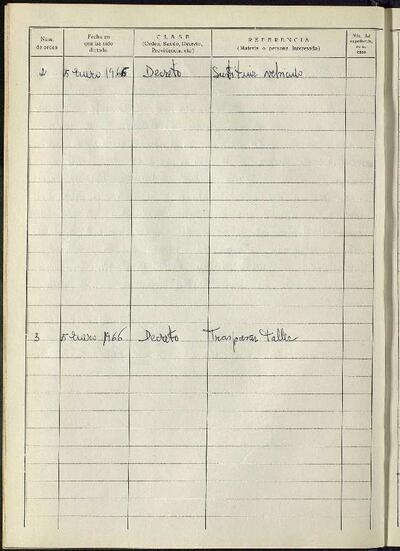 Núm. de orden
Fecha en que ha sido dictada
CLASE
(Orden, Bando, Decreto, Providencia, etc.)
REFERENCIA
(Materia o persona interesada)
Núm. del expediente, en su caso
2 5 Enero 1966 Decreto Sustituir vehiculo
3 5 Enero 1966 Decreto Traspasar Taller